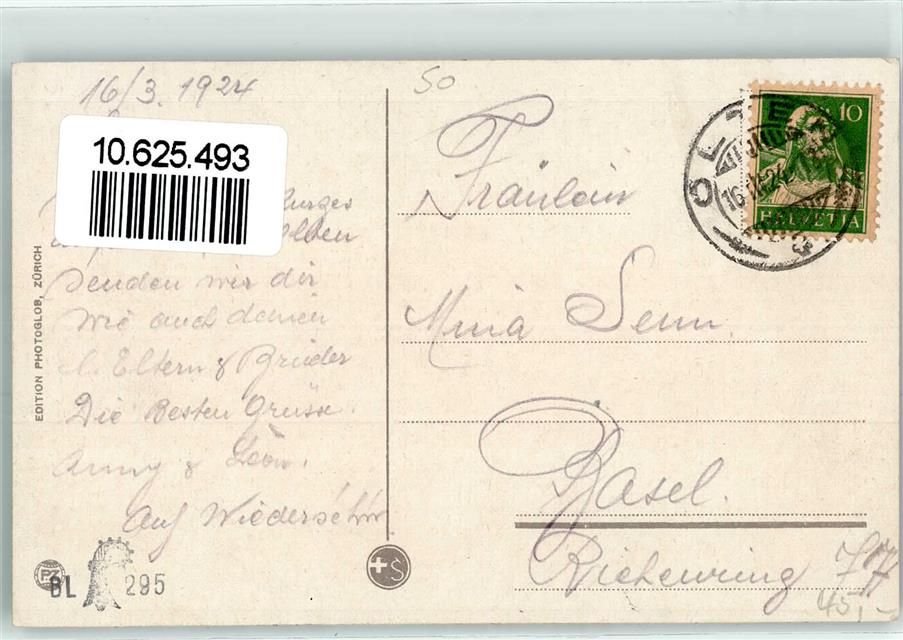 16/3. 1924
10.625.493
Kurzes
Olten
Senden wir dir
wie auch deinen
l. Eltern & Brüder
Die Besten Grüsse.
Anny & Léon.
Auf Wiedersehn
EDITION PHOTOGLOB, ZÜRICH
PZ
BL 295
+S
50
10
HELVETIA
OLTEN
Fräulein
Mina Senn.
Basel.
Riehenring 77
45,-